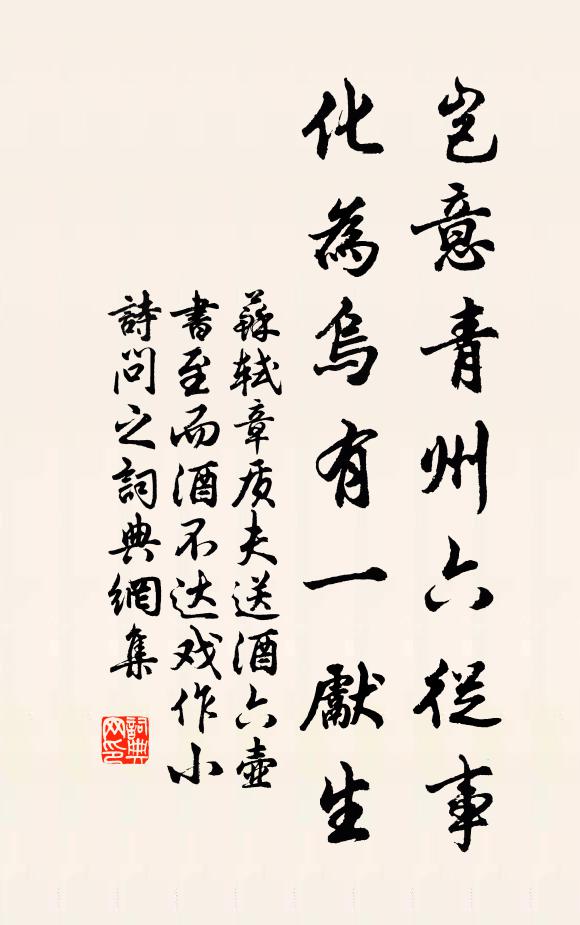 岂意青州六從事
化為烏有一獻生
蘇軾章质夫送酒六壺
書至而酒不达戏作小
詩問之詞典網集
詞典
网印